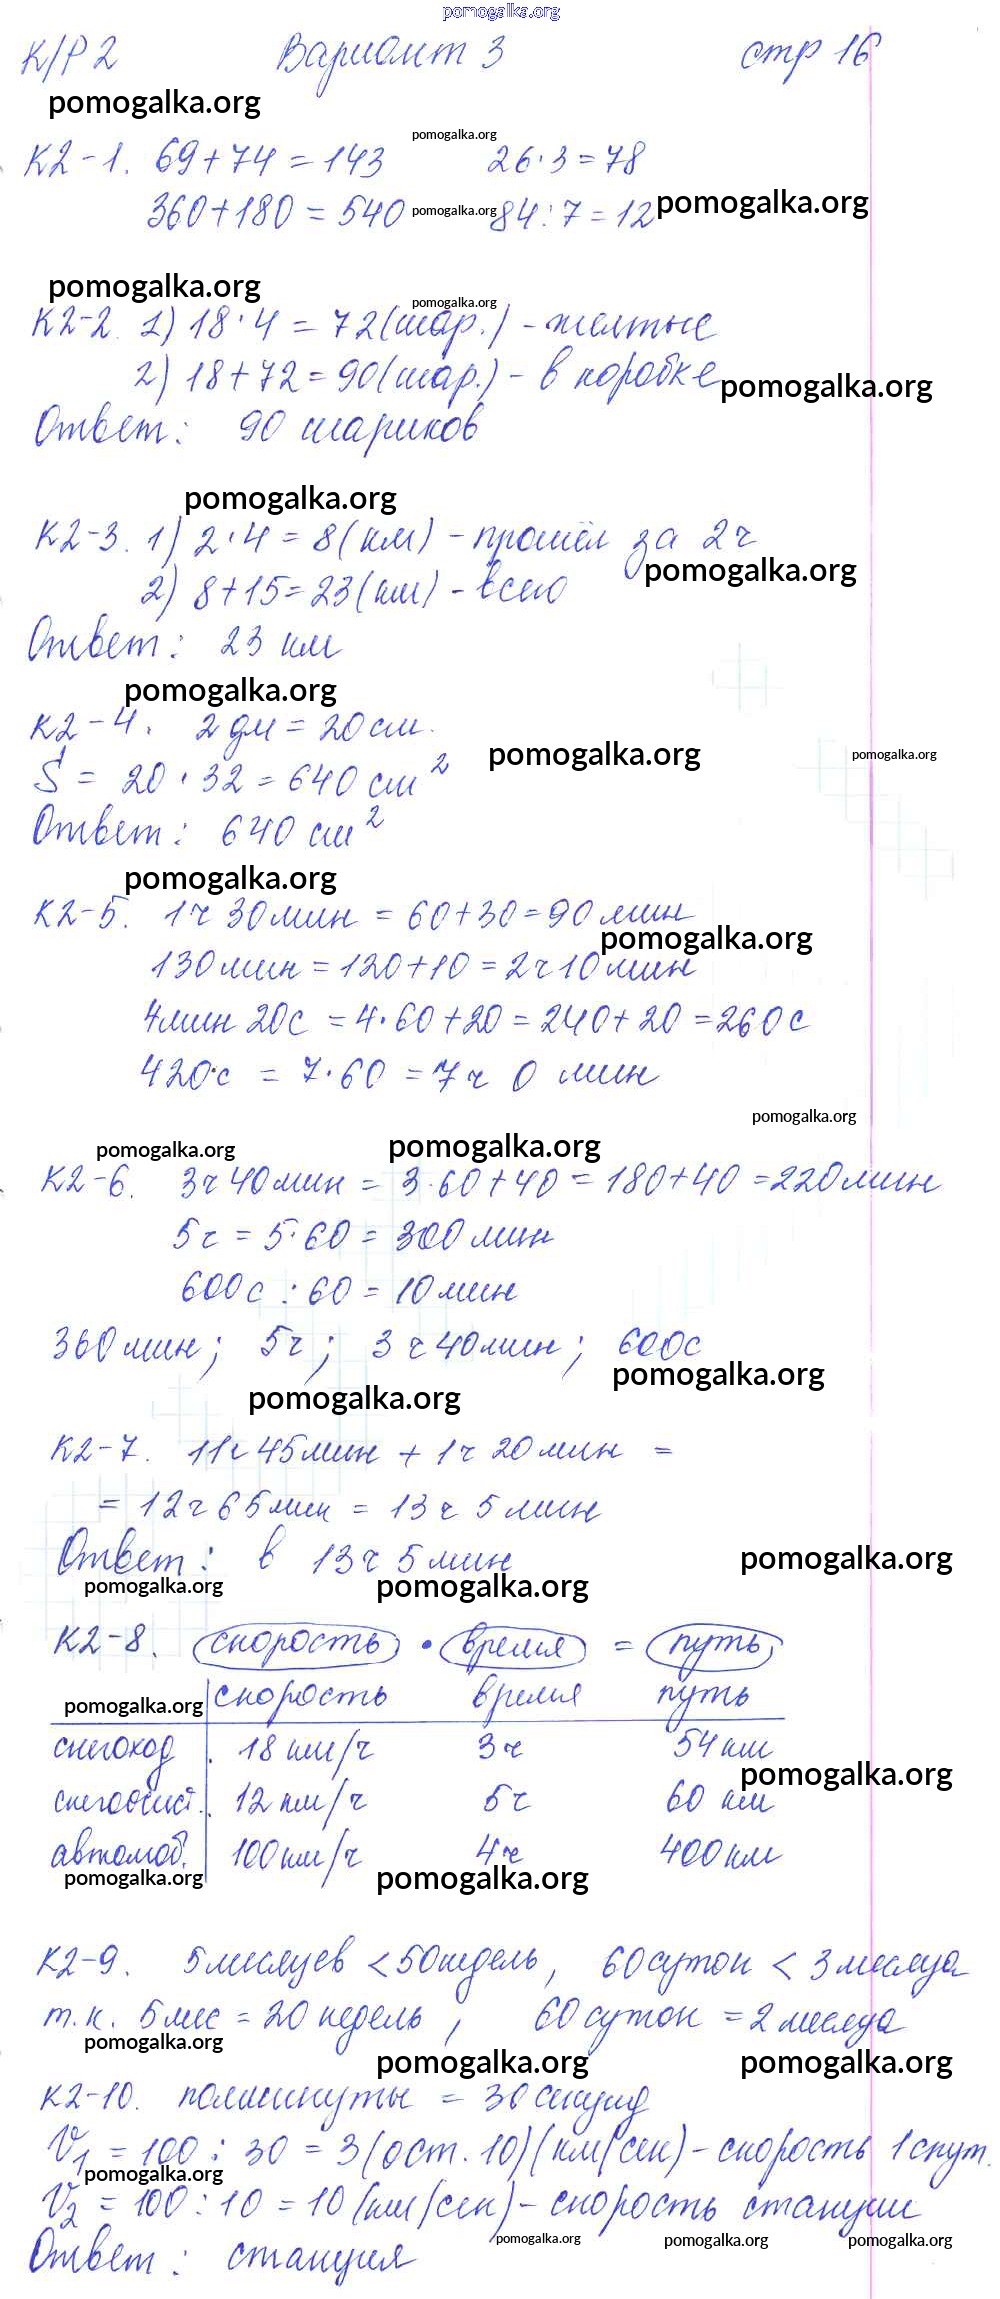 pomogalka.org
К/Р 2 Вариант 3 стр 16
pomogalka.org
pomogalka.org
К2-1. 69+74=143 26·3=78
360+180=540 pomogalka.org 84:7=12 pomogalka.org
pomogalka.org
pomogalka.org
К2-2. 1) 18·4=72(шар.) - желтые
2) 18+72=90(шар.) - в коробке pomogalka.org
Ответ: 90 шариков
pomogalka.org
К2-3. 1) 2·4=8(км) - прошёл за 2ч
pomogalka.org
2) 8+15=23(км) - всего
Ответ: 23 км
pomogalka.org
К2-4. 2дм=20см.
pomogalka.org pomogalka.org
S = 20·32=640 см²
Ответ: 640 см²
pomogalka.org
К2-5. 1ч 30мин = 60+30=90мин
pomogalka.org
130мин=120+10=2ч10мин
4мин 20с = 4·60+20=240+20=260с
420с = 7·60 = 7ч 0 мин
pomogalka.org
pomogalka.org pomogalka.org
К2-6. 3ч 40мин = 3·60+40=180+40=220мин
5ч = 5·60 = 300мин
600с : 60 = 10мин
360мин; 5ч; 3ч40мин; 600с
pomogalka.org
pomogalka.org
К2-7. 11ч 45мин + 1ч 20мин =
= 12ч 65мин = 13ч 5мин
Ответ: в 13ч 5мин pomogalka.org
pomogalka.org pomogalka.org
К2-8. скорость · время = путь
pomogalka.org скорость время путь
снегоход. 18 км/ч 3ч 54км
pomogalka.org
снегоочист. 12 км/ч 5ч 60 км
автомоб. 100км/ч 4ч 400км
pomogalka.org pomogalka.org
К2-9. 5месяцев < 50недель, 60суток < 3месяца
т.к. 5мес = 20недель, 60суток = 2месяца
pomogalka.org pomogalka.org pomogalka.org
К2-10. полминуты = 30секунд
V₁ = 100 : 30 = 3(ост. 10)(км/сек) - скорость 1спут.
pomogalka.org
V₂ = 100 : 10 = 10(км/сек) - скорость станции
pomogalka.org pomogalka.org pomogalka.org
Ответ: станция